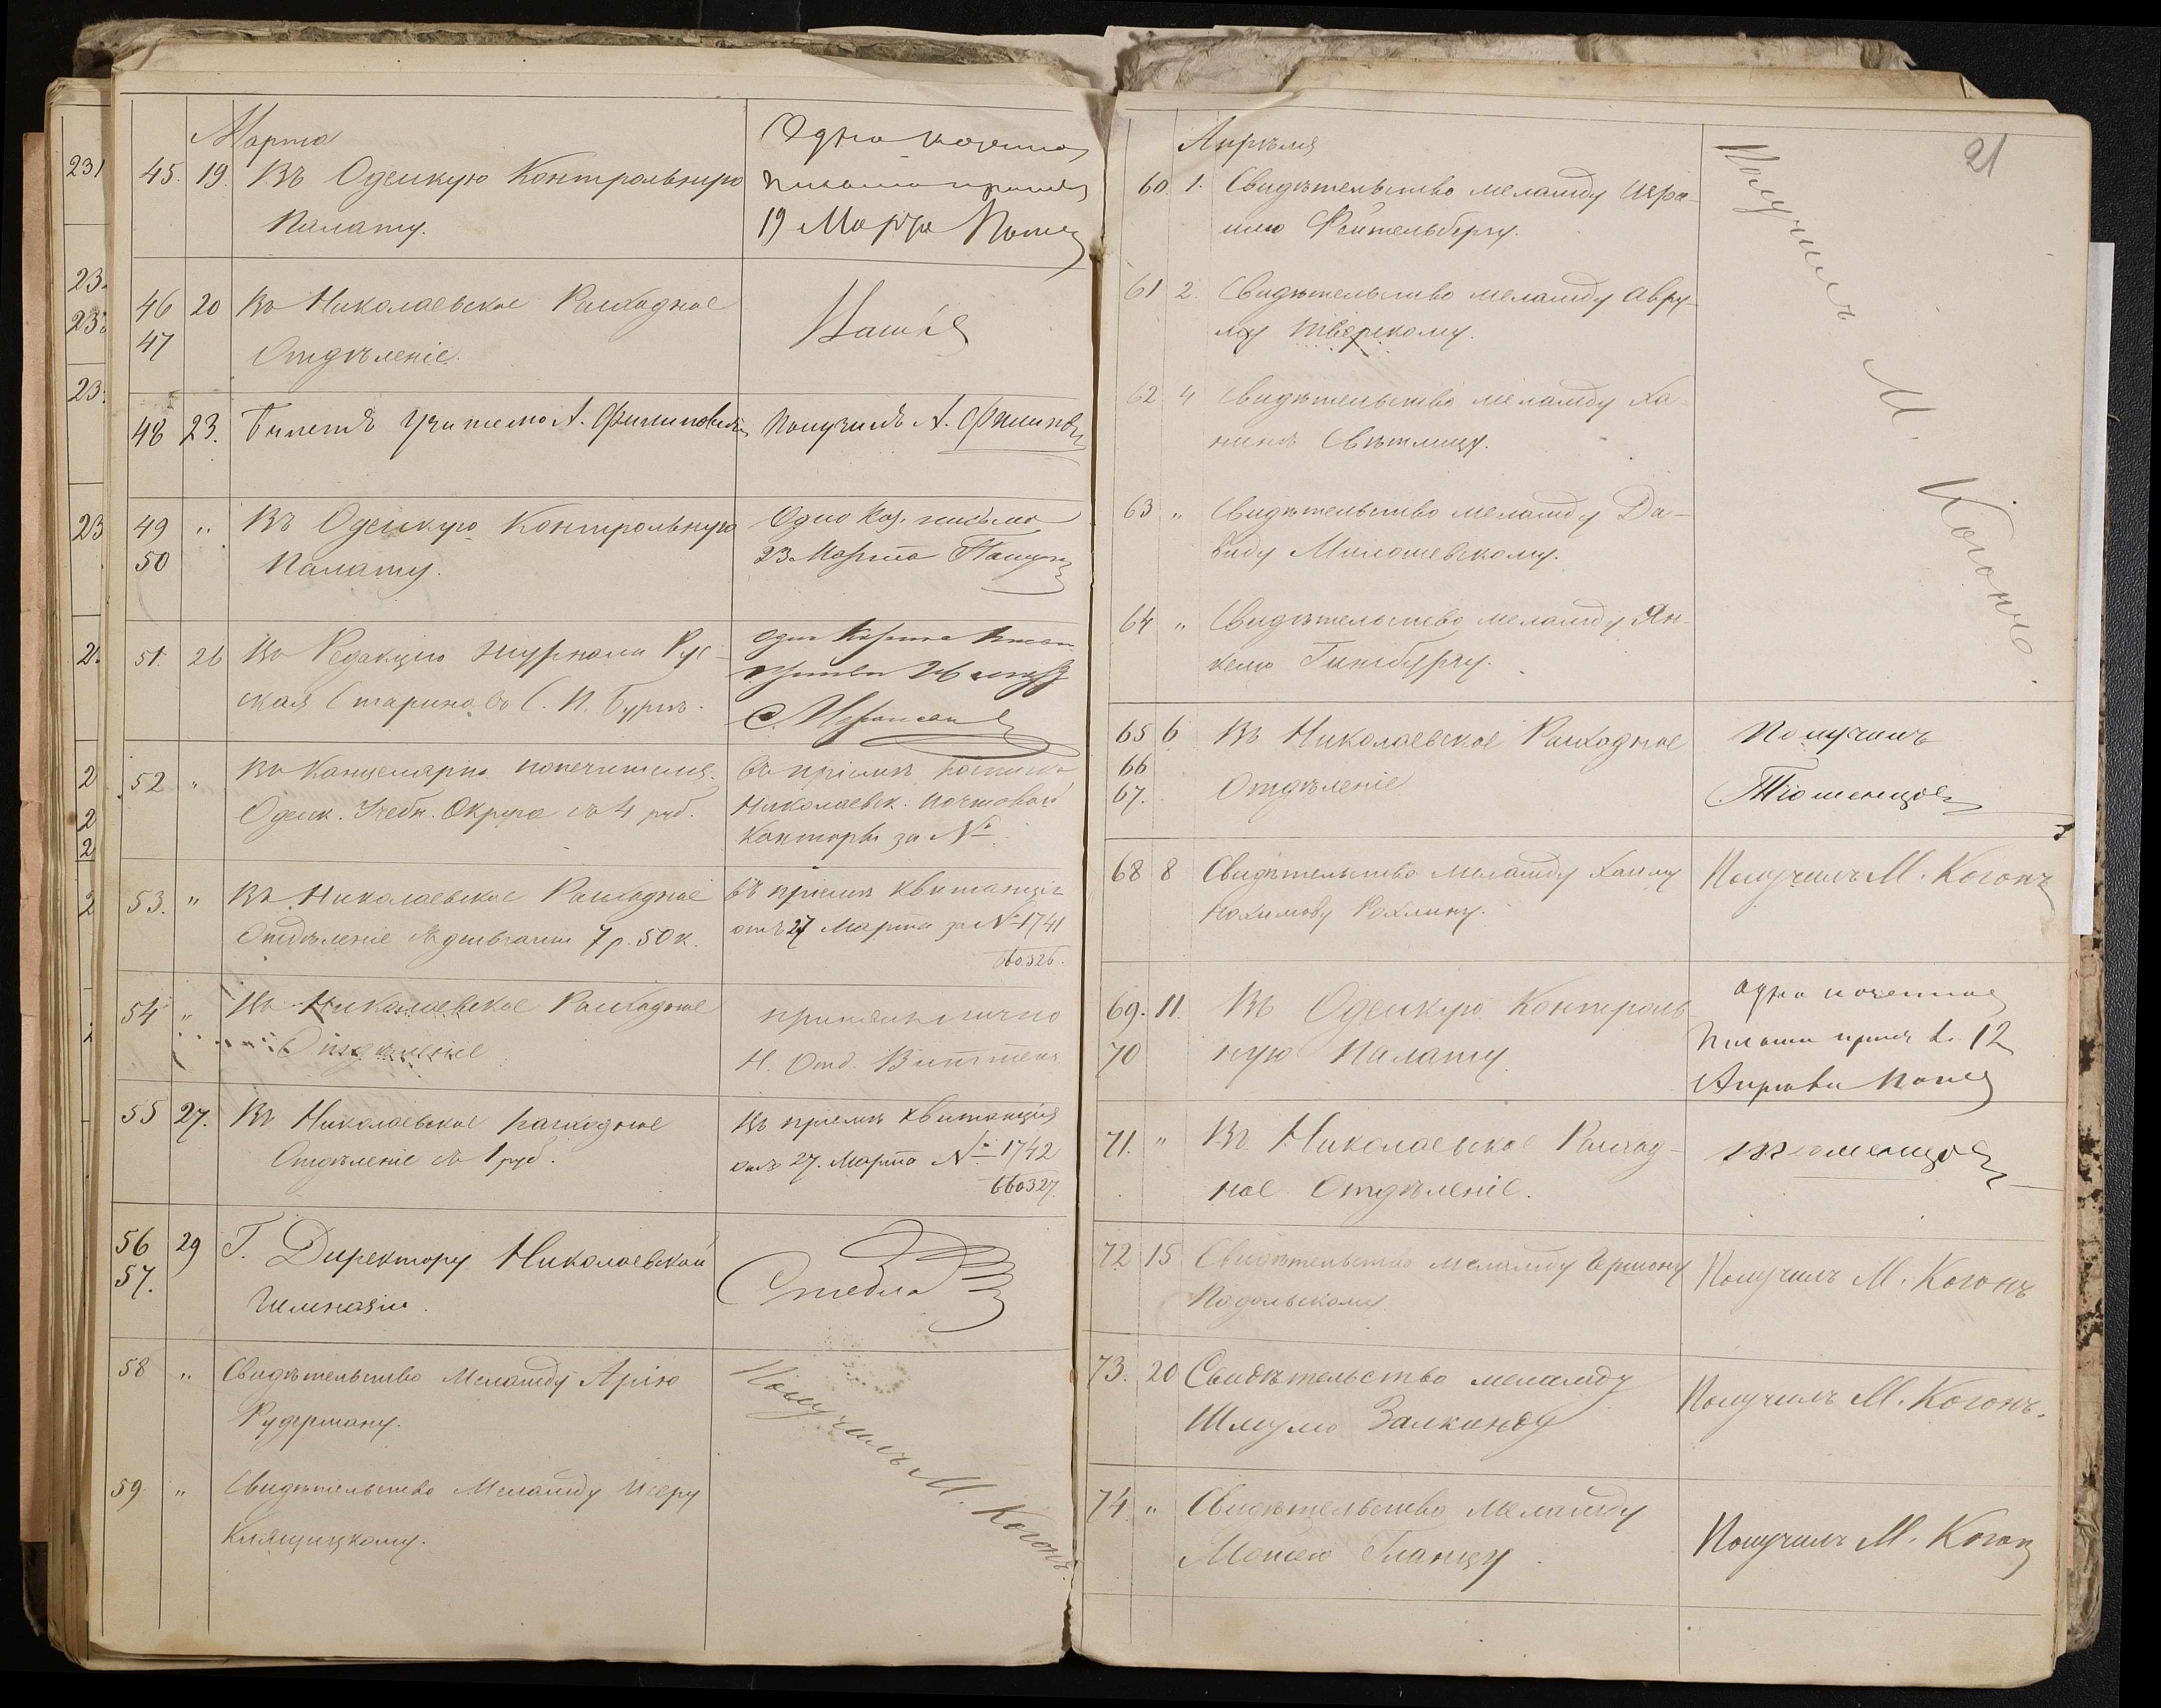 Марта
45. 19. Въ Одесскую Контрольную
Палату.
19 Марта
46 20 Въ Николаевское Расходное
47 Отдѣленіе.
48 23. Билетъ Учителю А. Филиповичу
Получилъ А. Филипович
49 " Въ Одесскую Контрольную
50 Палату.
Одно Каз. письмо
23 Марта
51. 26 Въ Редакцію журнала Рус-
ская Старина въ С. П. Бургъ.
52 " Въ Канцелярію попечителя
Одесск. Учебн. Округа съ 4 руб.
Въ пріемѣ росписка
Николаевск. Почтовой
Конторы за №
53. " Въ Николаевское Расходное
Отдѣленіе съ деньгами 7 р. 50 к.
въ пріемѣ квитанція
отъ 27 Марта за № 1741
660326.
54 " Въ Николаевское Расходное
Отдѣленіе
55 27. Въ Николаевское Расходное
Отдѣленіе съ 1 руб.
Въ пріемѣ квитанція
отъ 27. Марта № 1742
660327.
56 29 Г. Директору Николаевской
57. Гимназіи.
58 " Свидѣтельство Меламду Арію
Рудерману.
59. " Свидѣтельство Меламду Исеру
Получилъ М. Когонъ.
21
Апрѣля
60. 1. Свидѣтельство меламду Изра-
илю Фейтельбергу.
61 2. Свидѣтельство меламду Авру-
му Тверскому.
62 4 Свидѣтельство меламду Ха-
нинѣ Свѣтлицу.
63 " Свидѣтельство меламду Да-
виду Милошевскому.
64 " Свидѣтельство меламду Ян-
келю Гинсбургу.
Получилъ М. Когонъ.
65 6 Въ Николаевское Расходное
66 Отдѣленіе
67.
Получилъ
Тюменцов
68 8 Свидѣтельство меламду Хаиму
Нохимову Рохлину.
Получилъ М. Когонъ
69. 11. Въ Одесскую Контроль-
70 ную Палату.
12
71. " Въ Николаевское Расход-
ное Отдѣленіе.
Тюменцов
72 15 Свидѣтельство меламду Ершону
Подольскому
Получилъ М. Когонъ
73. 20 Свидѣтельство меламду
Шмулю Залкинду
Получилъ М. Когонъ.
74. " Свидѣтельство меламду
Мошею Гланцу.
Получилъ М. Когон